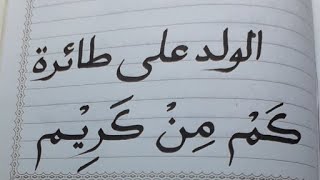 الولد على طائرة
كَمْ مِنْ كَرِيْم